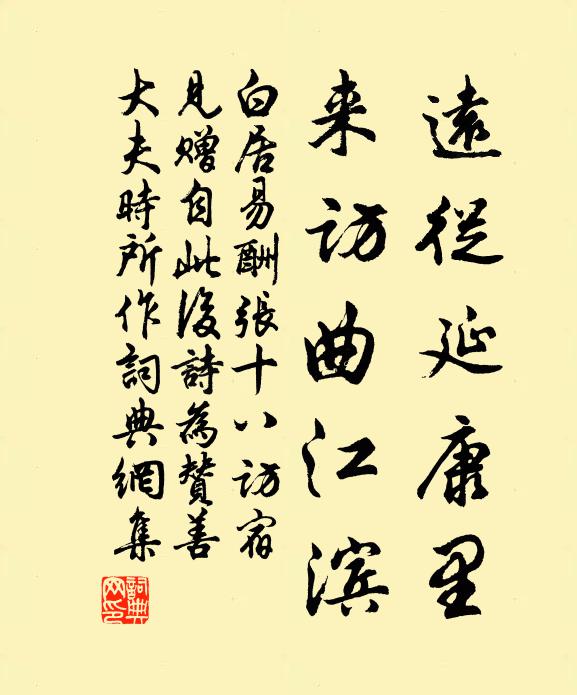 遠從延康里
来訪曲江滨
白居易酬張十八訪宿
見贈自此後詩為贊善
大夫時所作詞典網集
詞典网印